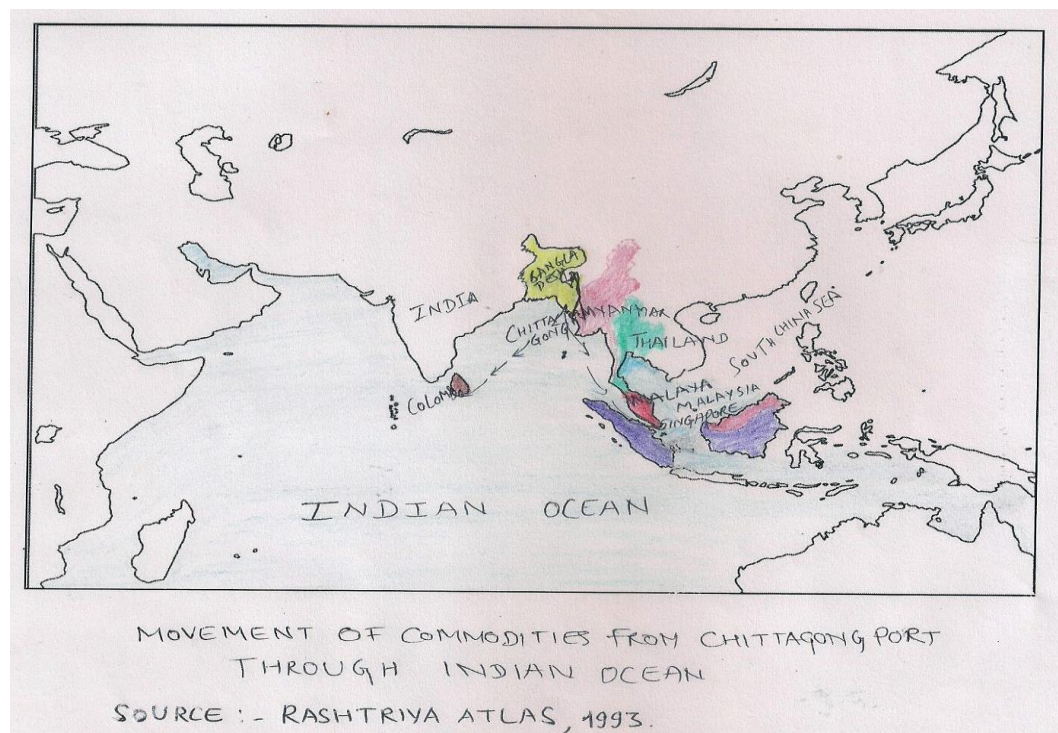 BANGLA
DESH
INDIA
MYANMAR
CHITTA
GONG
THAILAND
SOUTH CHINA SEA
COLOMBO
MALAYA
MALAYSIA
SINGAPORE
INDIAN OCEAN
MOVEMENT OF COMMODITIES FROM CHITTAGONG PORT
THROUGH INDIAN OCEAN
SOURCE :- RASHTRIYA ATLAS, 1993.